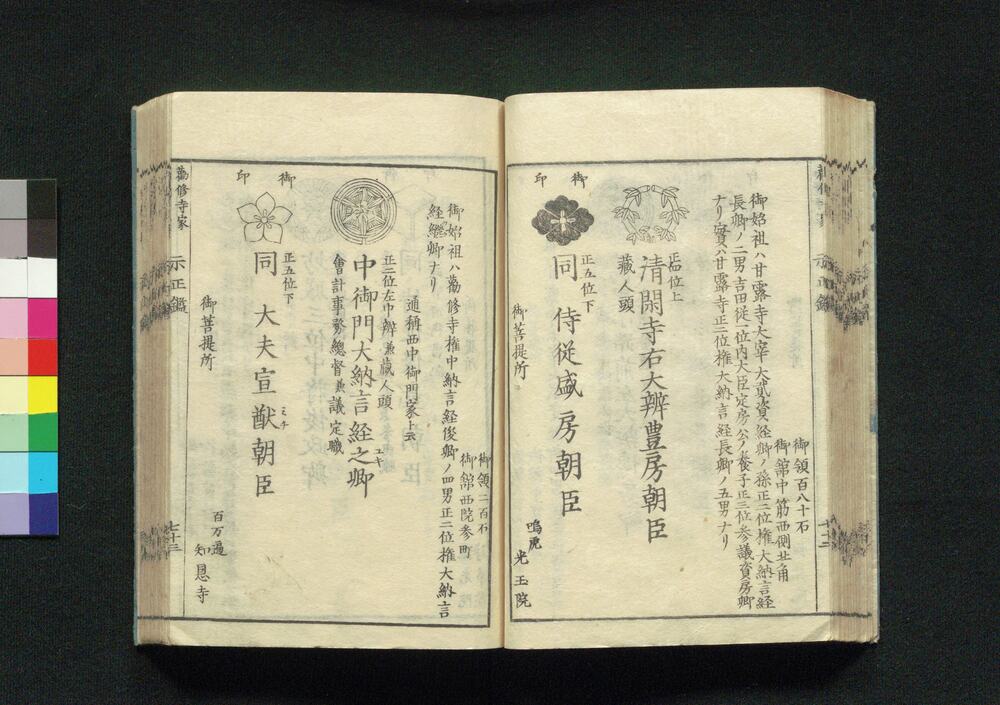 御領百八十石
御舘中筋西側北角
御始祖ハ甘露寺大宰大貳資経卿ノ孫正二位権大納言経
長卿ノ二男吉田従一位内大臣定房公ノ養子正三位参議資房卿
ナリ實ハ甘露寺正二位権大納言経長卿ノ五男ナリ
御印
正四位上
蔵人頭
清閑寺右大辨豊房朝臣
正五位下
同 侍従盛房朝臣
御菩提所
鳴虎
光玉院
御領二百石
御舘西院参町
御始祖ハ勸修寺権中納言経俊卿ノ四男正二位権大納言
経継卿ナリ
通稱西中御門家ト云
御印
正二位左中辨兼蔵人頭
中御門大納言経之卿
會計事務總督兼議定職
正五位下
同 大夫宣猷朝臣
ミチ
御菩提所
百万遍
知恩寺
勸修寺家
示正鑑
七十三